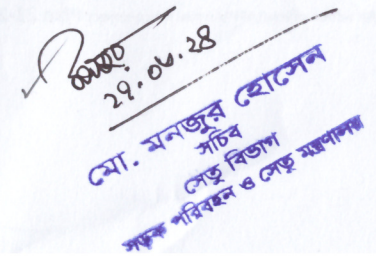 ২৭.০৬.২৪
মো. মনজুর হোসেন
সচিব
সেতু বিভাগ
সড়ক পরিবহন ও সেতু মন্ত্রণালয়